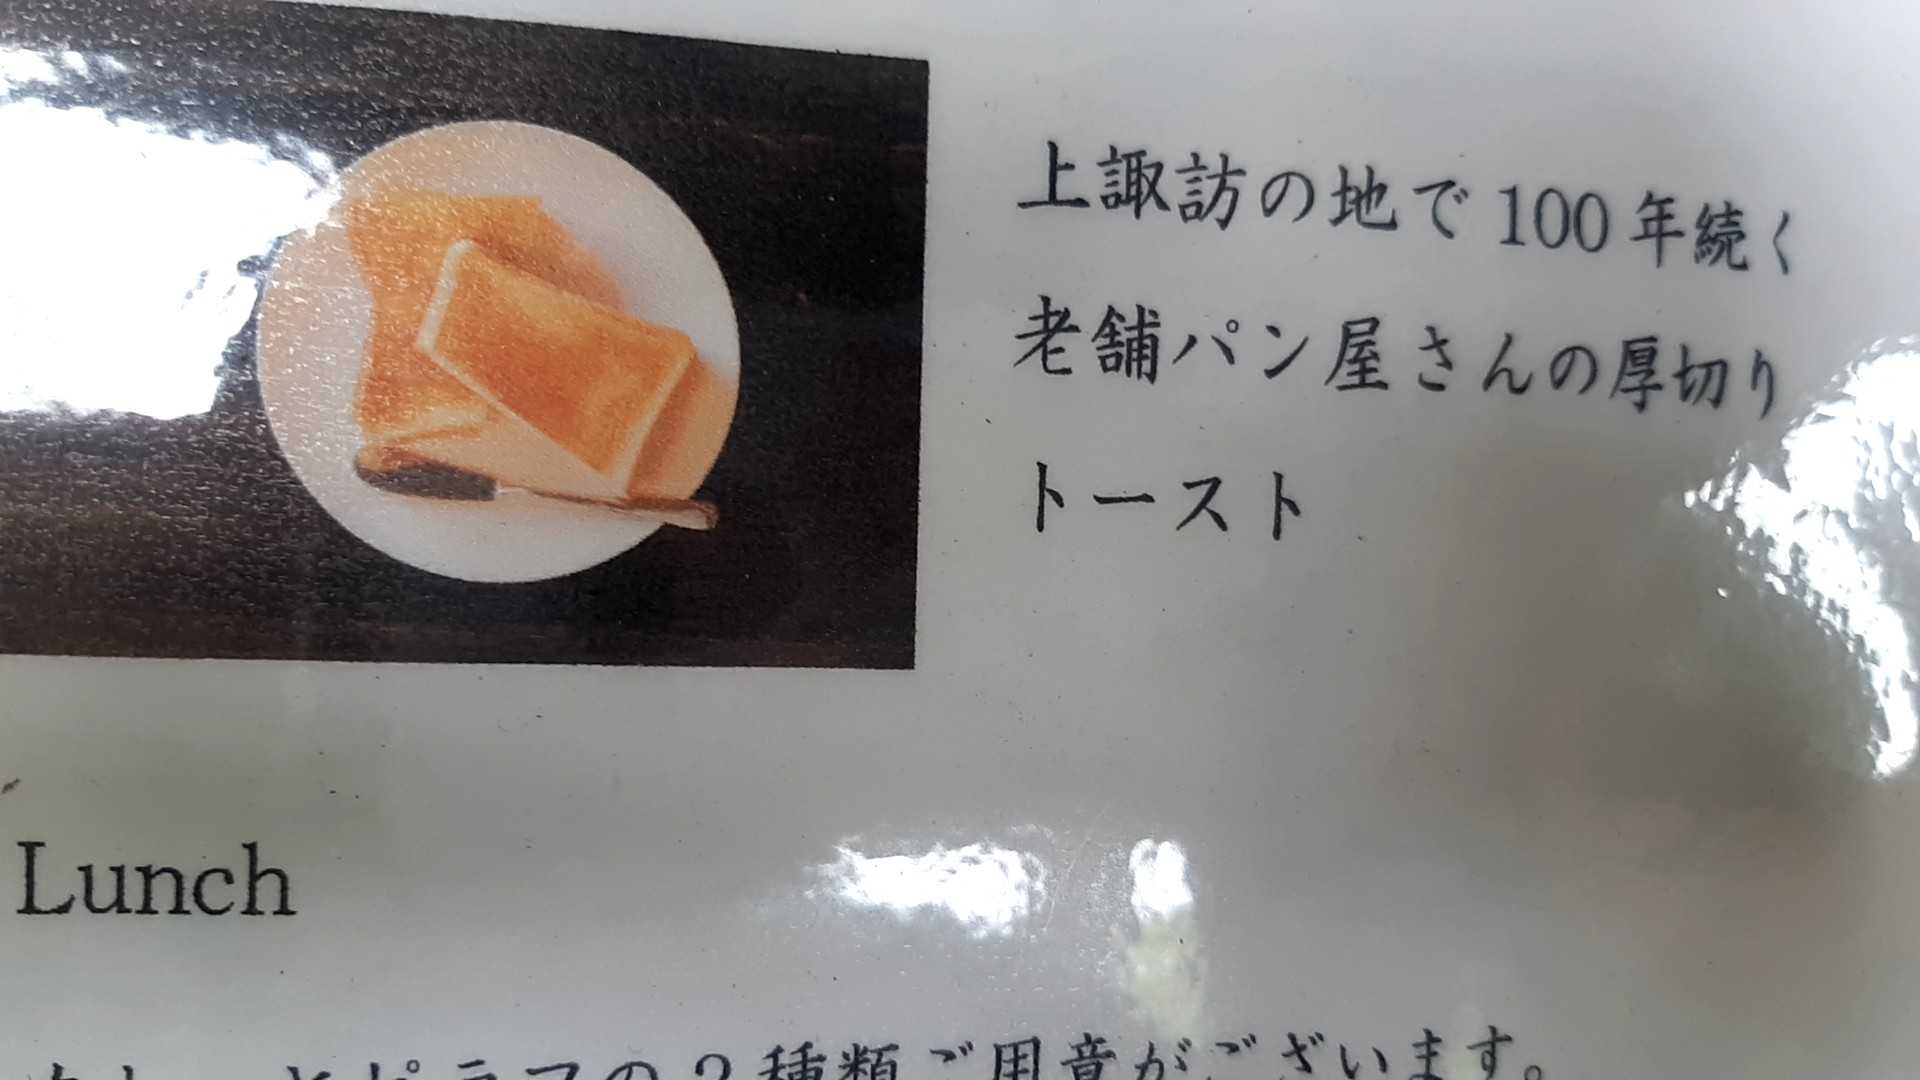 上諏訪の地で100年続く
老舗パン屋さんの厚切り
トースト
Lunch
カレーとピラフの2種類ご用意がございます。